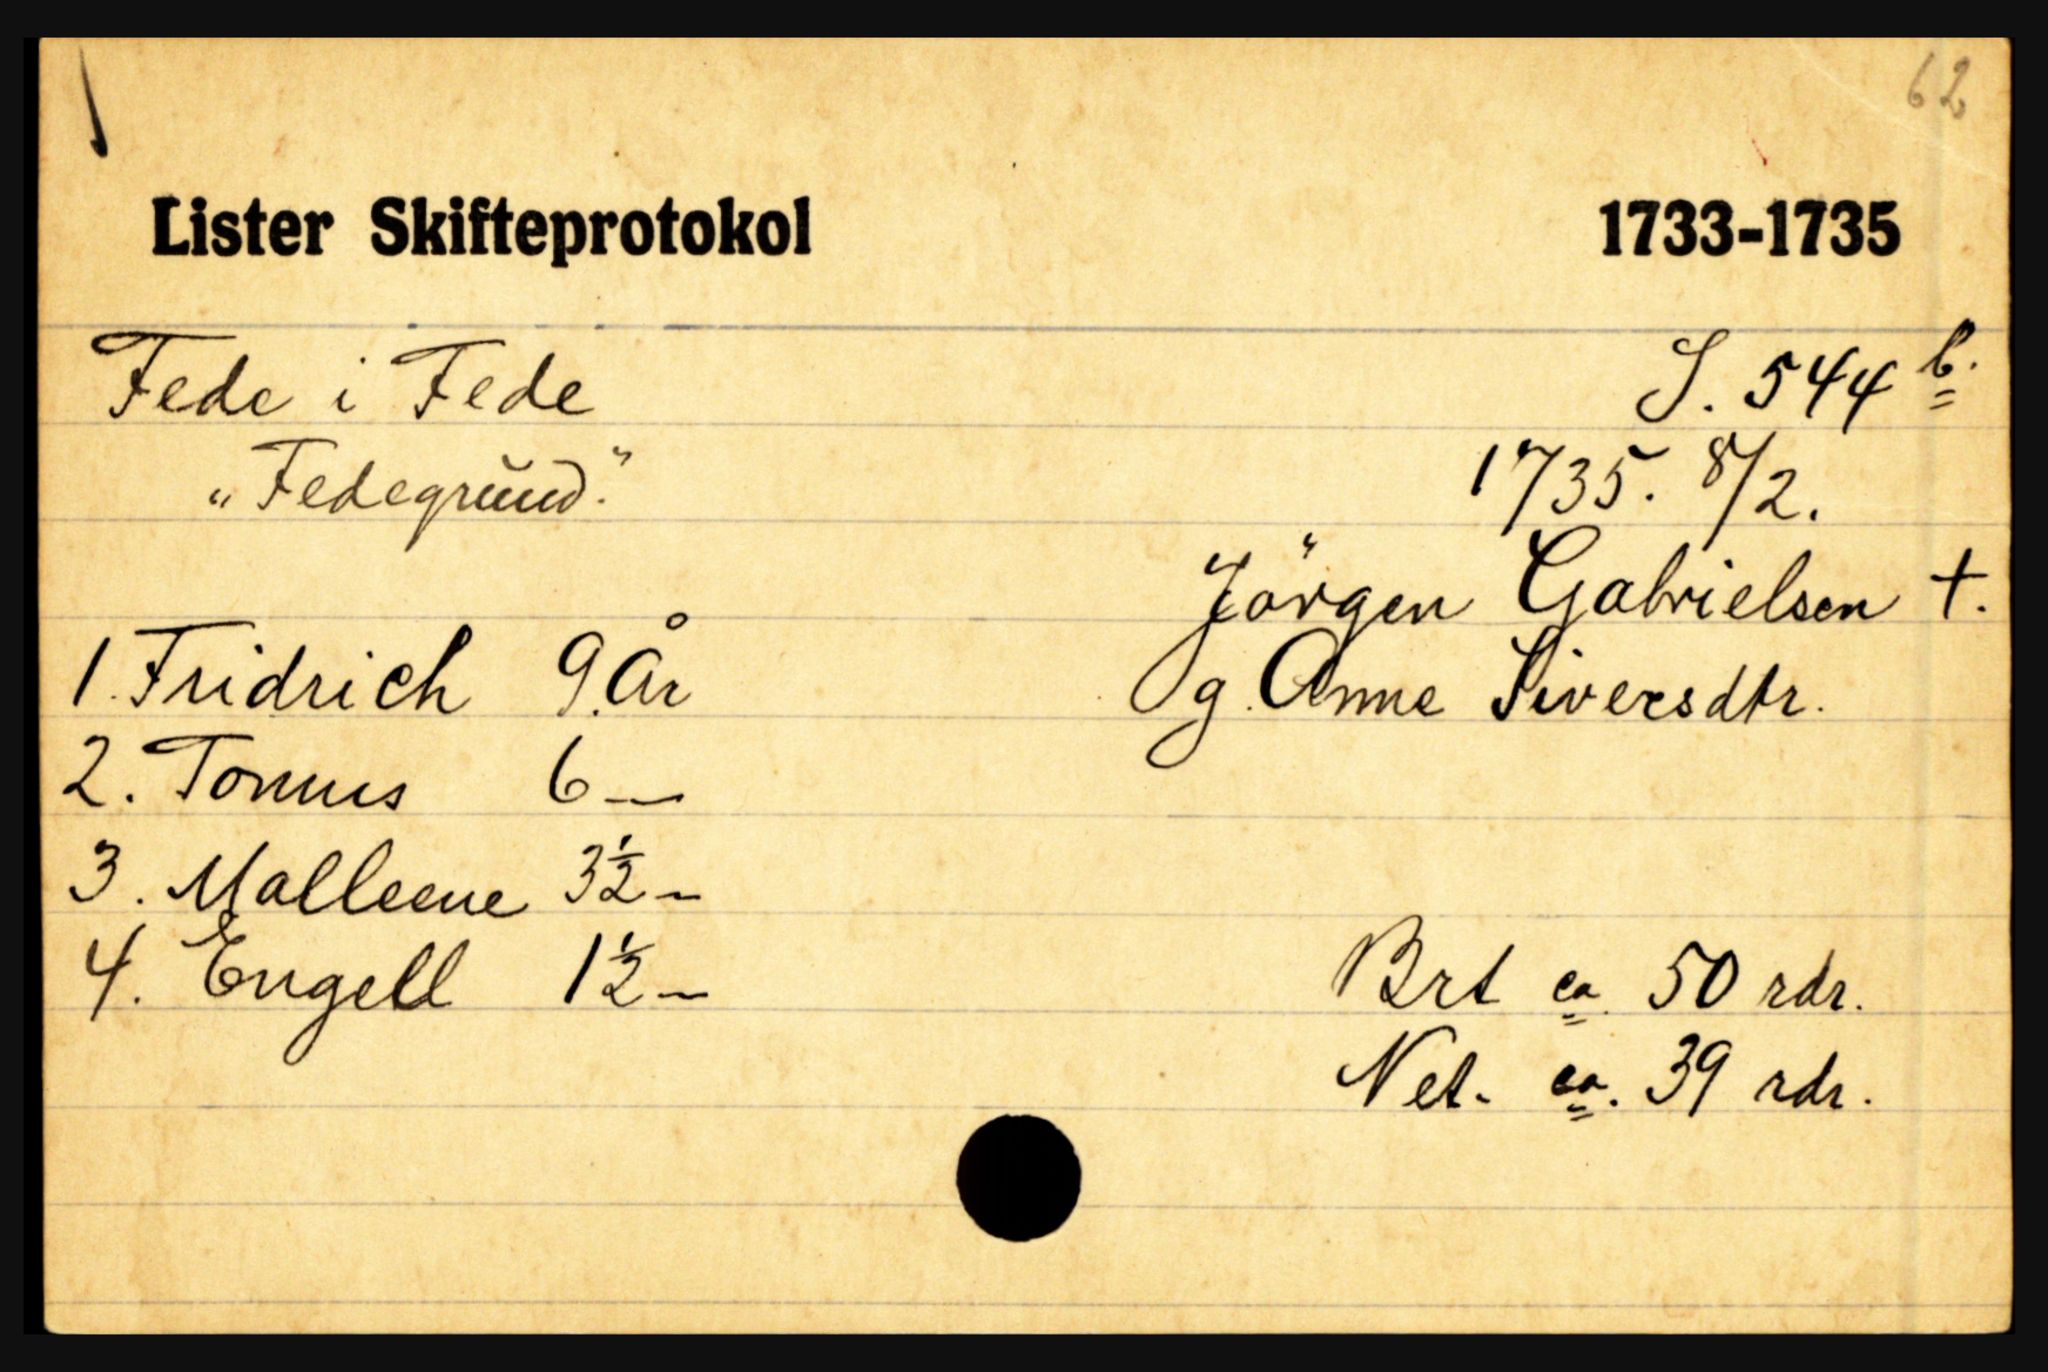 62
Lister Skifteprotokol 1733-1735
Fede i Fede S. 544 b.
„Fedegrŭnd." 1735. 8/2.
Jörgen Gabrielsen †.
1. Fridrich 9. År Og. Anne Siversdtr.
2. Tonnis 6 —
3. Malleene 3½ —
4. Engell 1½ — Brt ca. 50 rdr.
Net. ca. 39 rdr.